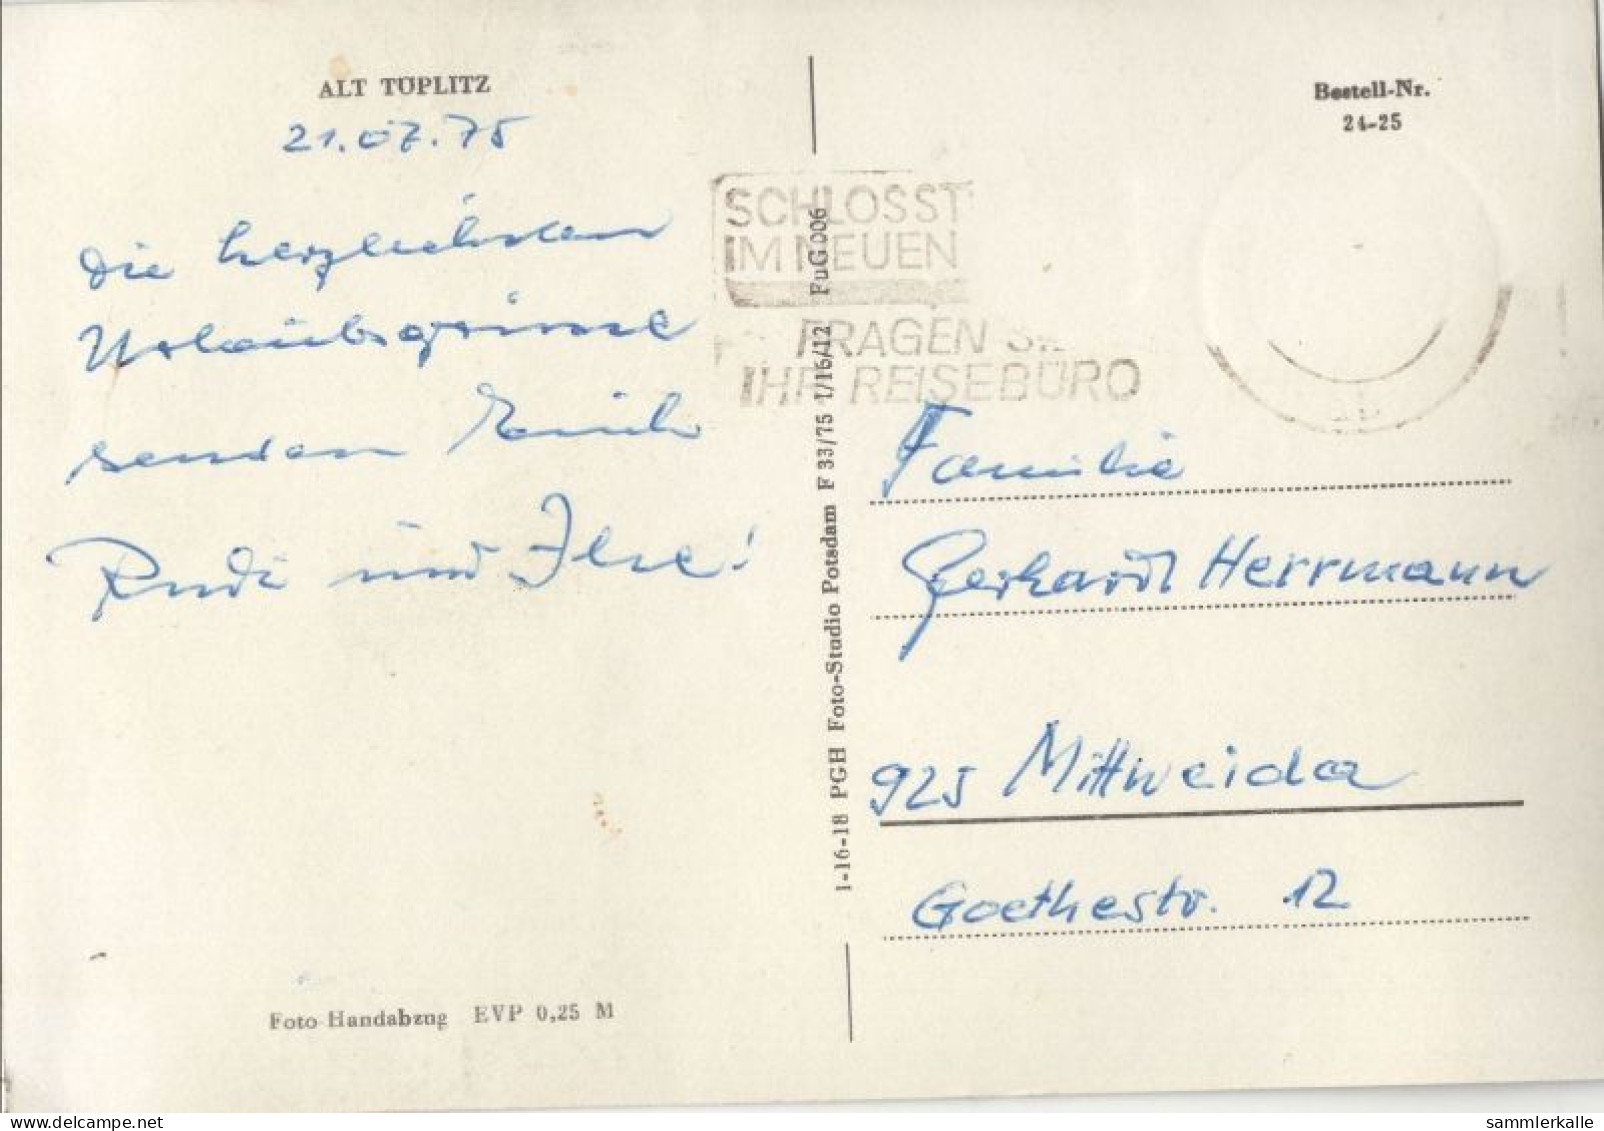 ALT TÖPLITZ
21.07.75
Die herzlichsten
Urlaubsgrüsse
senden Euch
Rudi und Ilse!
Foto-Handabzug EVP 0,25 M
1-16-18 PGH Foto-Studio Potsdam F 33/75 1/16/12 FuG 006
Bestell-Nr.
24-25
SCHLOSST
IM NEUEN
FRAGEN
IHR REISEBÜRO
Familie
Gerhardt Herrmann
925 Mittweida
Goethestr. 12
sammlerkalle